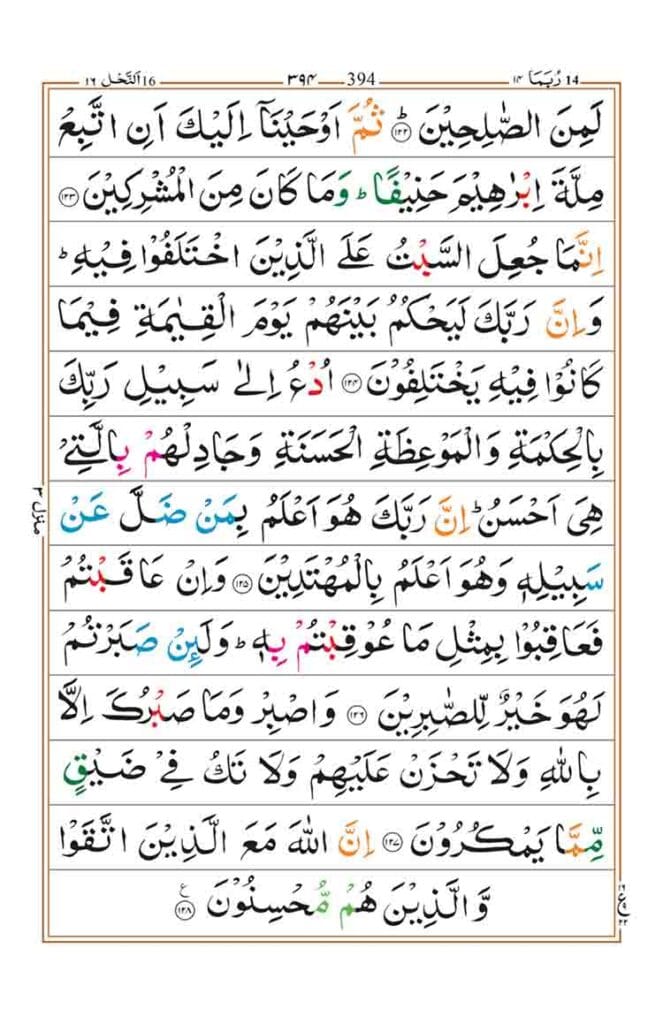 رُبَمَا ١٤ 14 394 ٣٩٤ اَلنَّحْل ١٦ 16
لَمِنَ الصّٰلِحِيْنَ ؕ‏﴿۱۲۲﴾ ثُمَّ اَوْحَيْنَاۤ اِلَيْكَ اَنِ اتَّبِعْ
مِلَّةَ اِبْرٰهِيْمَ حَنِيْفًا ؕ وَمَا كَانَ مِنَ الْمُشْرِكِيْنَ ﴿۱۲۳﴾
اِنَّمَا جُعِلَ السَّبْتُ عَلَى الَّذِيْنَ اخْتَلَفُوْا فِيْهِ ؕ
وَاِنَّ رَبَّكَ لَيَحْكُمُ بَيْنَهُمْ يَوْمَ الْقِيٰمَةِ فِيْمَا
كَانُوْا فِيْهِ يَخْتَلِفُوْنَ ﴿۱۲۴﴾ اُدْعُ اِلٰى سَبِيْلِ رَبِّكَ
بِالْحِكْمَةِ وَالْمَوْعِظَةِ الْحَسَنَةِ وَجَادِلْهُمْ بِالَّتِيْ
هِىَ اَحْسَنُ ؕ اِنَّ رَبَّكَ هُوَ اَعْلَمُ بِمَنْ ضَلَّ عَنْ
سَبِيْلِهٖ وَهُوَ اَعْلَمُ بِالْمُهْتَدِيْنَ ﴿۱۲۵﴾ وَاِنْ عَاقَبْتُمْ
فَعَاقِبُوْا بِمِثْلِ مَا عُوْقِبْتُمْ بِهٖ ؕ وَلَئِنْ صَبَرْتُمْ
لَهُوَ خَيْرٌ لِّلصّٰبِرِيْنَ ﴿۱۲۶﴾ وَاصْبِرْ وَمَا صَبْرُكَ اِلَّا
بِاللّٰهِ وَلَا تَحْزَنْ عَلَيْهِمْ وَلَا تَكُ فِيْ ضَيْقٍ
مِّمَّا يَمْكُرُوْنَ ﴿۱۲۷﴾ اِنَّ اللّٰهَ مَعَ الَّذِيْنَ اتَّقَوْا
وَّالَّذِيْنَ هُمْ مُّحْسِنُوْنَ ﴿۱۲۸﴾ ع
منزل ٣
١٦ ع ٢٢